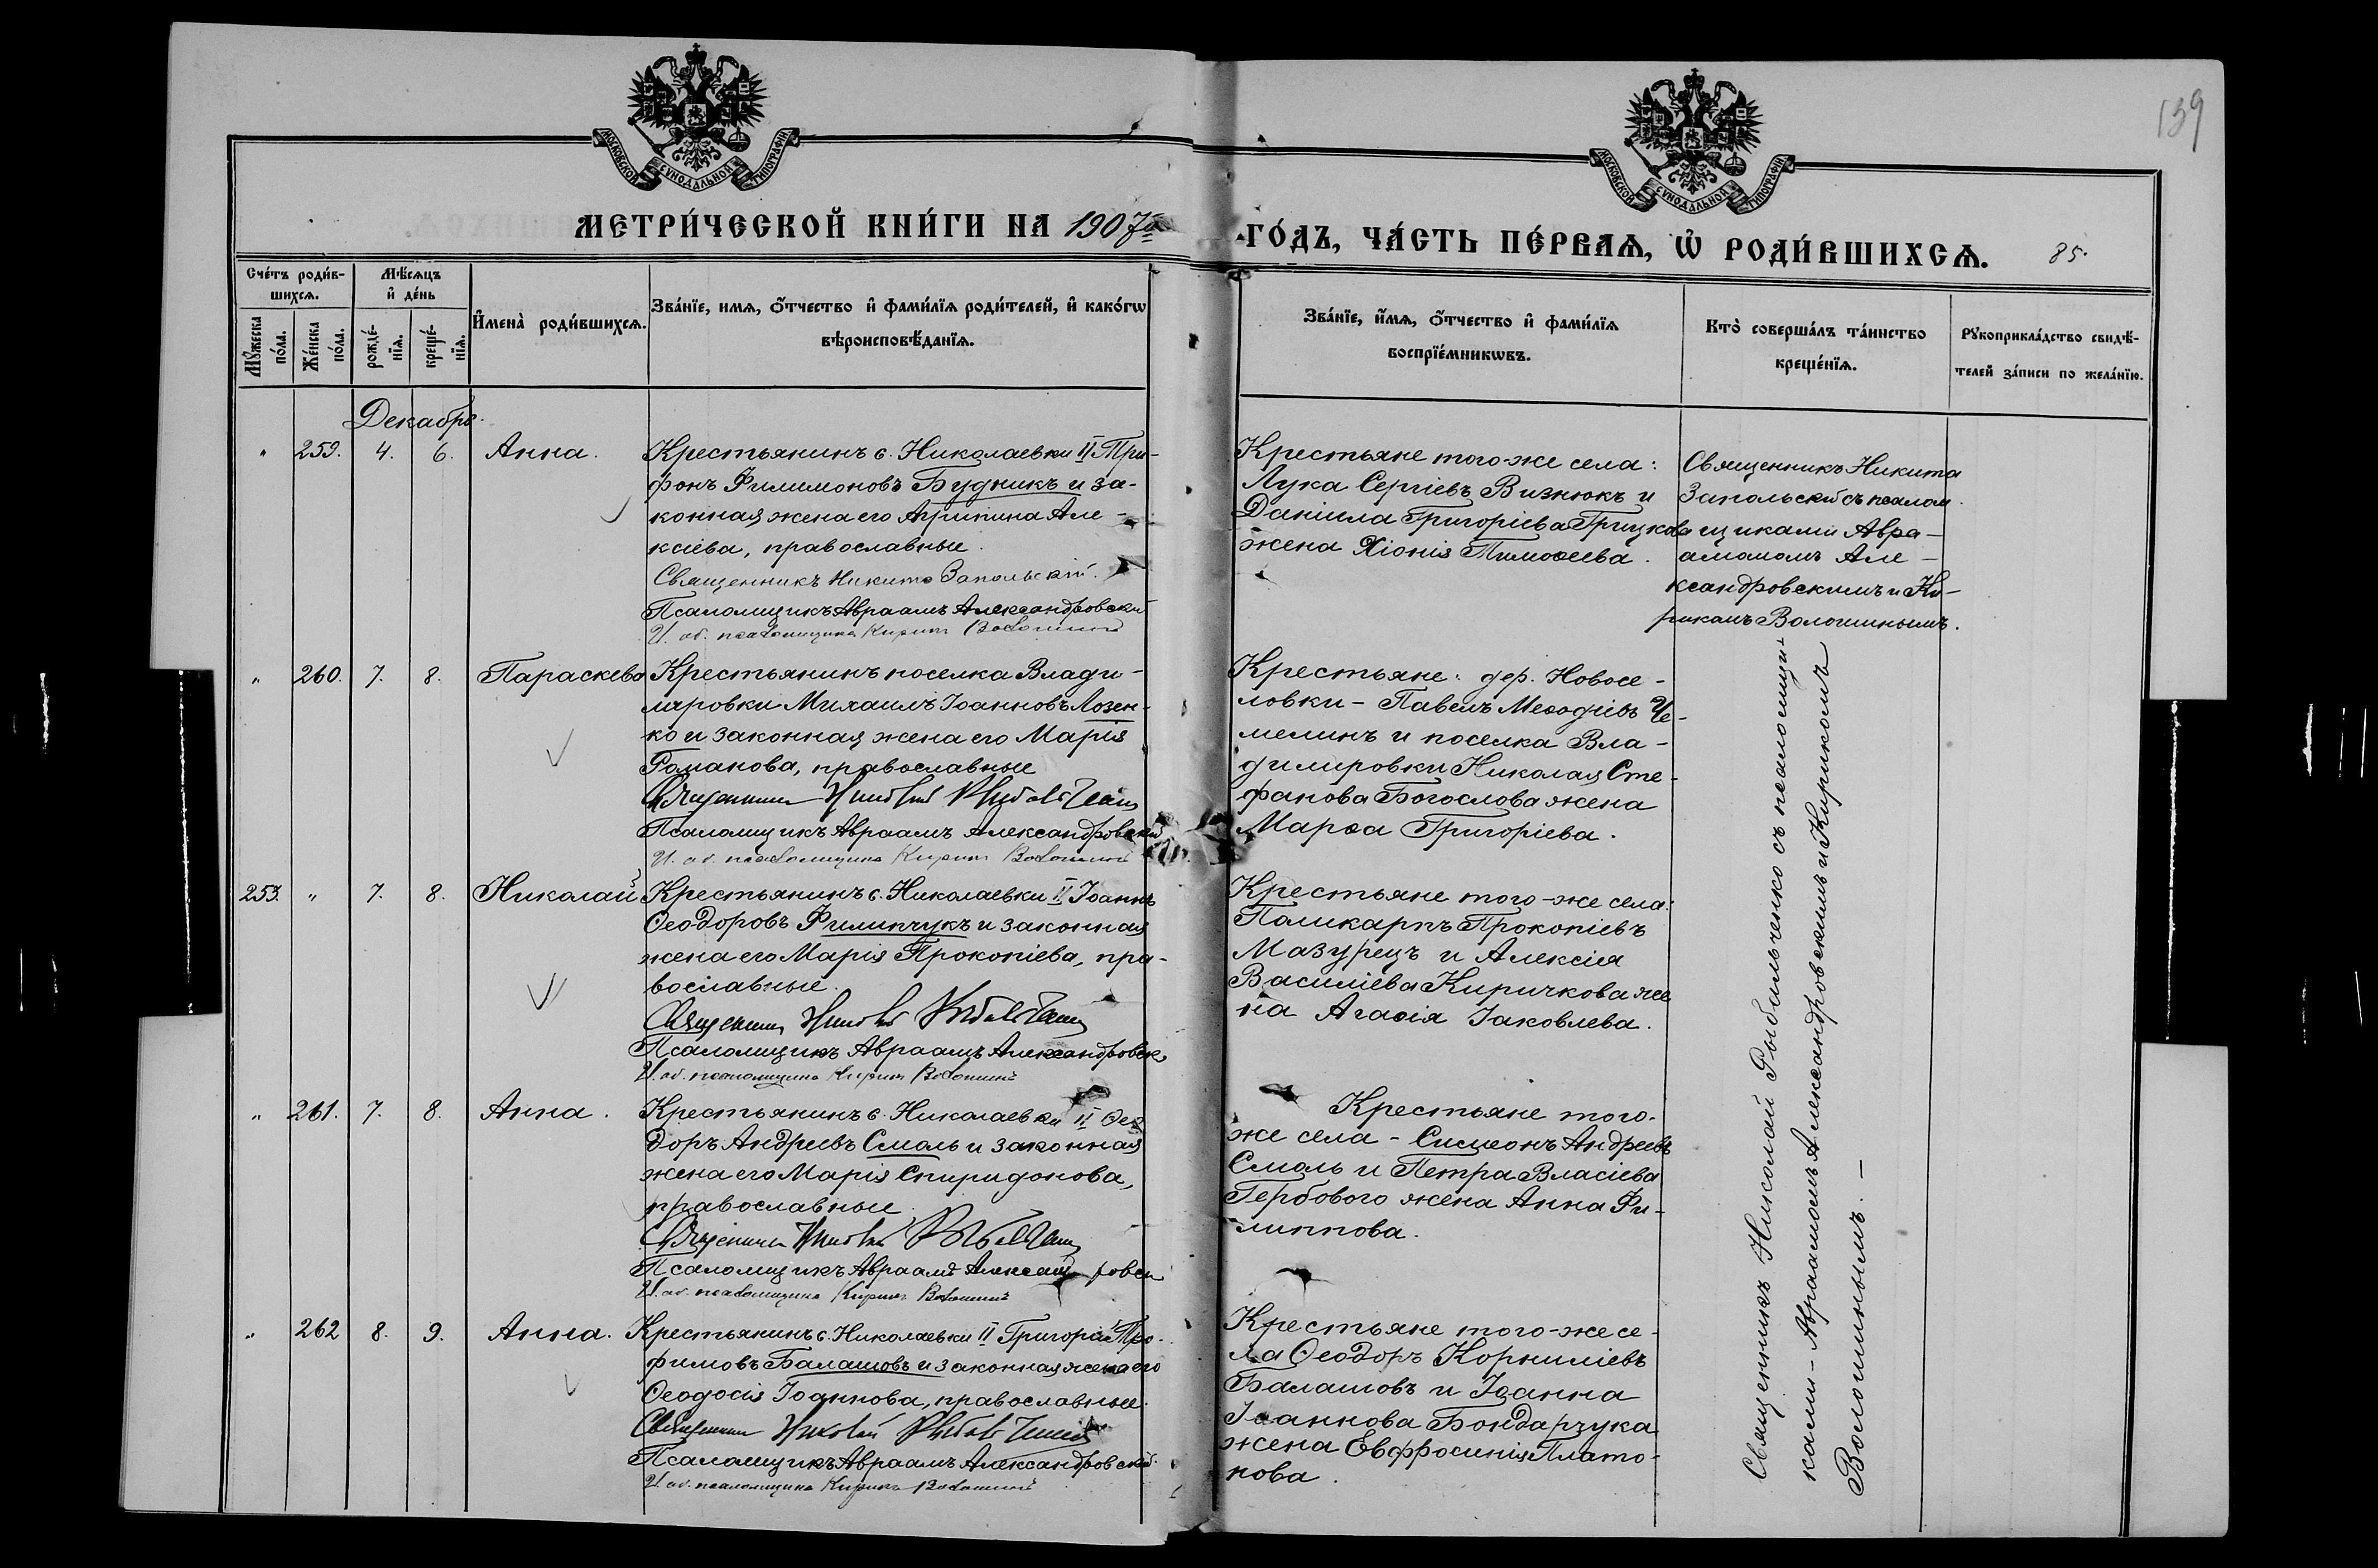 139
МОСКОВСКОЙ СУНОДАЛЬНОЙ ТИПОГРАФІИ
МОСКОВСКОЙ СУНОДАЛЬНОЙ ТИПОГРАФІИ
МЕТРИ́ЧЕСКОЙ КНИ́ГИ НА 1907й
ГО́ДЪ, ЧА́СТЬ ПЕ́РВАѦ, Ѡ҆ РОДИ́ВШИХСѦ. 85.
Сче́тъ роди́в-
шихсѧ.
Мѣ́сѧцъ
и҆ де́нь
Мꙋ́жеска
по́ла.
Же́нска
по́ла.
рожде́-
нїѧ.
креще́-
нїѧ.
И҆мена̀ роди́вшихсѧ.
Зва́нїе, имѧ, ѻ҆́тчество и҆ фами́лїѧ роди́телей, и҆ како́гѡ
вѣроисповѣ́данїѧ.
Зва́нїе, и҆́мѧ, ѻ҆́тчество и҆ фами́лїѧ
воспрїе́мникѡвъ.
Кто̀ соверша́лъ та́инство
креще́нїѧ.
Рꙋкоприкла́дство свидѣ́-
телей за́писи по жела́нїю.
Декабрь.
" 259. 4. 6. Анна.
Крестьянинъ с. Николаевки II Три-
фонъ Филимоновъ Будникъ и за-
конная жена его Агрипина Але-
ксіева, православные.
Священникъ Никита Запольскій.
Псаломщикъ Авраамъ Александровскій
И. об. псаломщика Кирикъ Волошинъ
Крестьяне того-же села:
Лука Сергіевъ Визнюкъ и
Даніила Григоріева Грицкова
жена Хіонія Тимоѳеева.
Священникъ Никита
Запольскій съ псалом-
щиками Авра-
амомъ Але-
ксандровскимъ и Ки-
рикомъ Волошинымъ.
" 260. 7. 8. Параскева
Крестьянинъ поселка Влади-
мировки Михаилъ Іоанновъ Лозен-
ко и законная жена его Марія
Романова, православные
Священникъ Николай Рыбальченко
Псаломщикъ Авраамъ Александровскій
И. об. псаломщика Кирикъ Волошинъ
Крестьяне: дер. Новосе-
ловки - Павелъ Меѳодіевъ Че-
мелинъ и поселка Вла-
димировки Николая Сте-
фанова Богослова жена
Марѳа Григоріева.
253. " 7. 8. Николай
Крестьянинъ с. Николаевки II Іоаннъ
Ѳеодоровъ Филипчукъ и законная
жена его Марія Прокопіева, пра-
вославные.
Священникъ Николай Рыбальченко
Псаломщикъ Авраамъ Александровск
И. об. псаломщика Кирикъ Волошинъ
Крестьяне того-же села:
Поликарпъ Прокопіевъ
Мазурецъ и Алексія
Василіева Киричкова же
на Агаѳія Іаковлева.
" 261. 7. 8. Анна.
Крестьянинъ с. Николаевки II Ѳео
доръ Андреевъ Смоль и законная
жена его Марія Спиридонова,
православные.
Священникъ Николай Рыбальченко
Псаломщикъ Авраамъ Александровск
И. об. псаломщика Кирикъ Волошинъ
Крестьяне того-
же села - Симеонъ Андреевъ
Смоль и Петра Власіева
Гербового жена Анна Фи-
липпова.
" 262 8. 9. Анна.
Крестьянинъ с. Николаевки II Григорій Тро-
фимовъ Балашовъ и законная жена его
Ѳеодосія Іоаннова, православные.
Священникъ Николай Рыбальченко
Псаломщикъ Авраамъ Александровскій
И. об. псаломщика Кирикъ Волошинъ
Крестьяне того-же се-
ла Ѳеодоръ Корниліевъ
Балашовъ и Іоанна
Іоаннова Бондарчука
жена Евфросинія Плато-
нова.
Священникъ Николай Рыбальченко съ псаломщи-
ками - Авраамомъ Александровскимъ и Кирикомъ
Волошинымъ. -